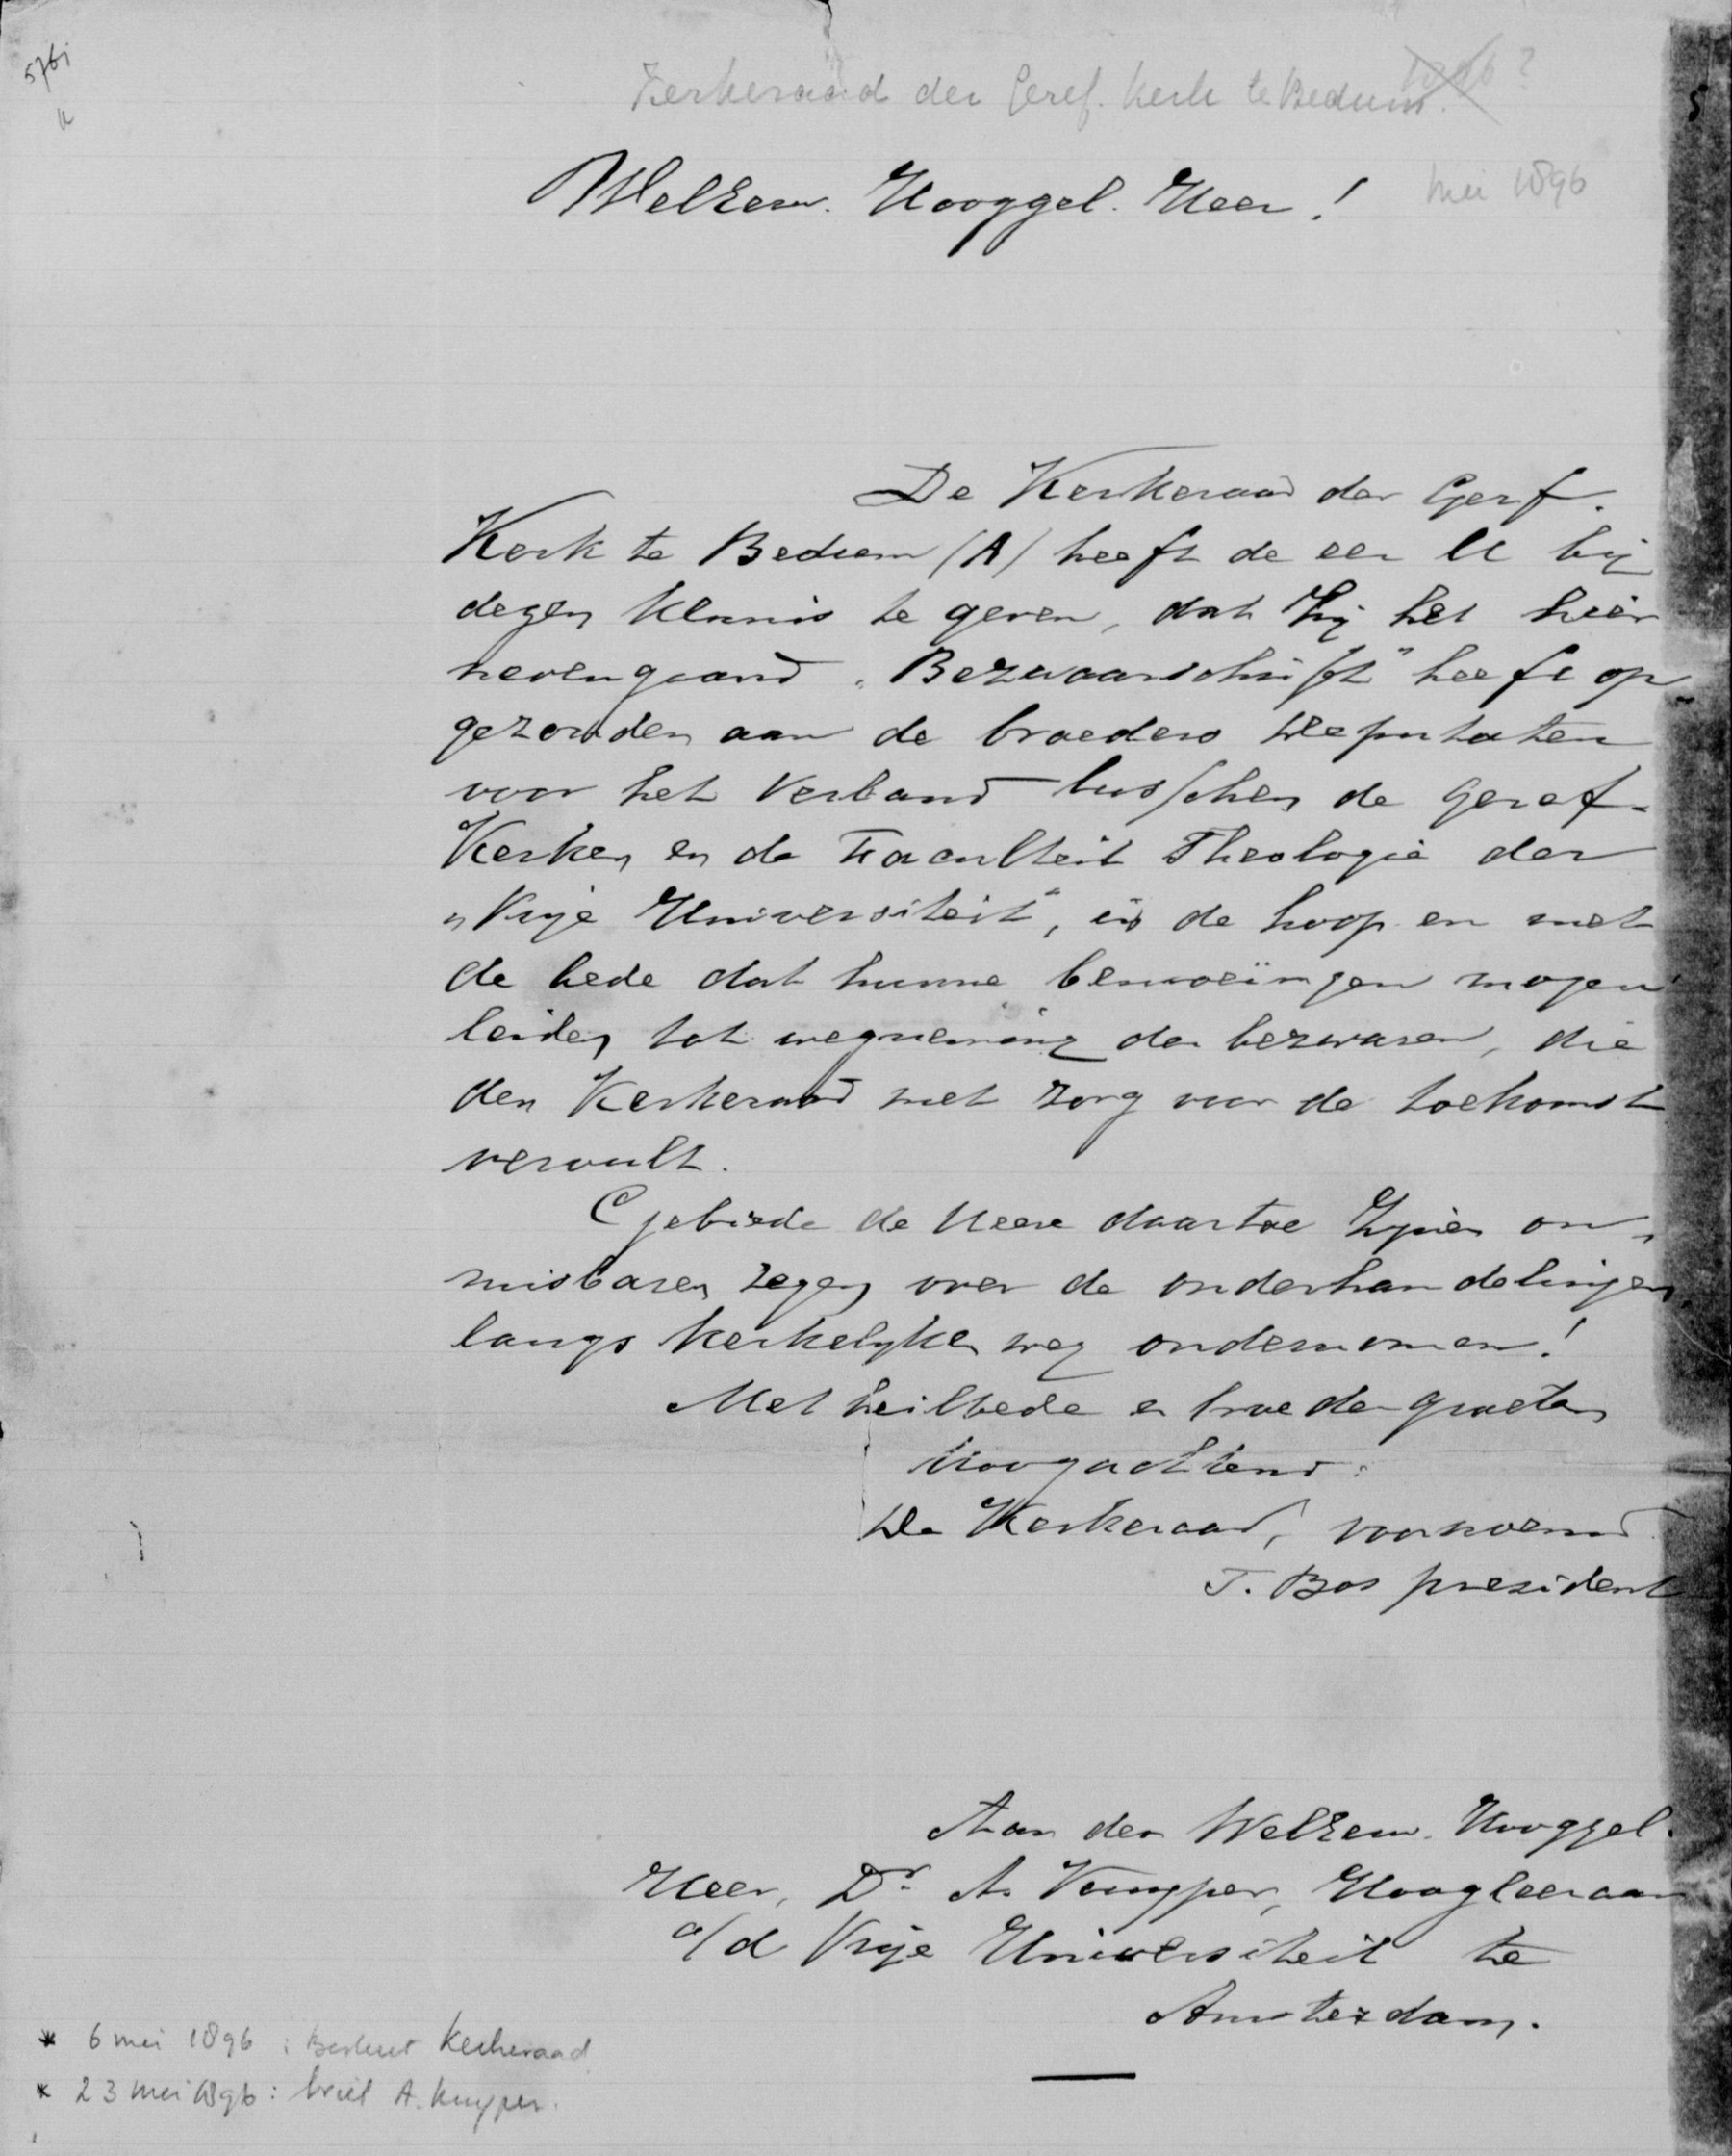 576i
Kerkeraad der Geref. Kerk te Bedum.
WelEerw. Hooggel. Heer!
Mei 1896
De Kerkeraad der Geref.
Kerk te Bedum (A) heeft de eer U bij
dezen kennis te geven, dat hij het hier
nevengaand „Bezwaarschrift" heeft op„
gezonden aan de broeders Deputaten
voor het verband tusschen de Geref.
Kerken en de Faculteit Theologie der
„Vrije Universiteit", in de hoop en met
de bede dat hunne bemoeiïngen mogen
leiden tot wegneming der bezwaren, die
den Kerkeraad met zorg voor de toekomst
vervult.
Gebiede de Heere daartoe Zijnen on„
misbaren zegen over de onderhandelingen,
langs kerkelijken weg ondernomen!
Met heilbede en broedergroeten
Hoogachtend:
De Kerkeraad, voornoemd
T. Bos president
Aan den WelEerw. Hooggel.
Heer, Dr. A. Kuyper, Hoogleeraar
a/d Vrije Universiteit te
Amsterdam.
* 6 mei 1896 : Besluit Kerkeraad
* 23 mei 1896 : brief A. Kuyper.